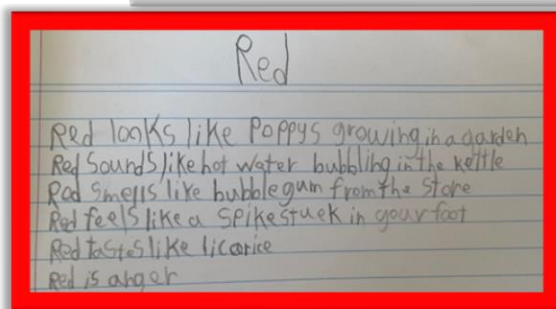 Red
Red looks like Poppys growing in a garden
Red Sounds like hot water bubbling in the kettle
Red Smells like bubblegum from the Store
Red feels like a Spike stuek in your foot
Red tastes like licorice
Red is anger